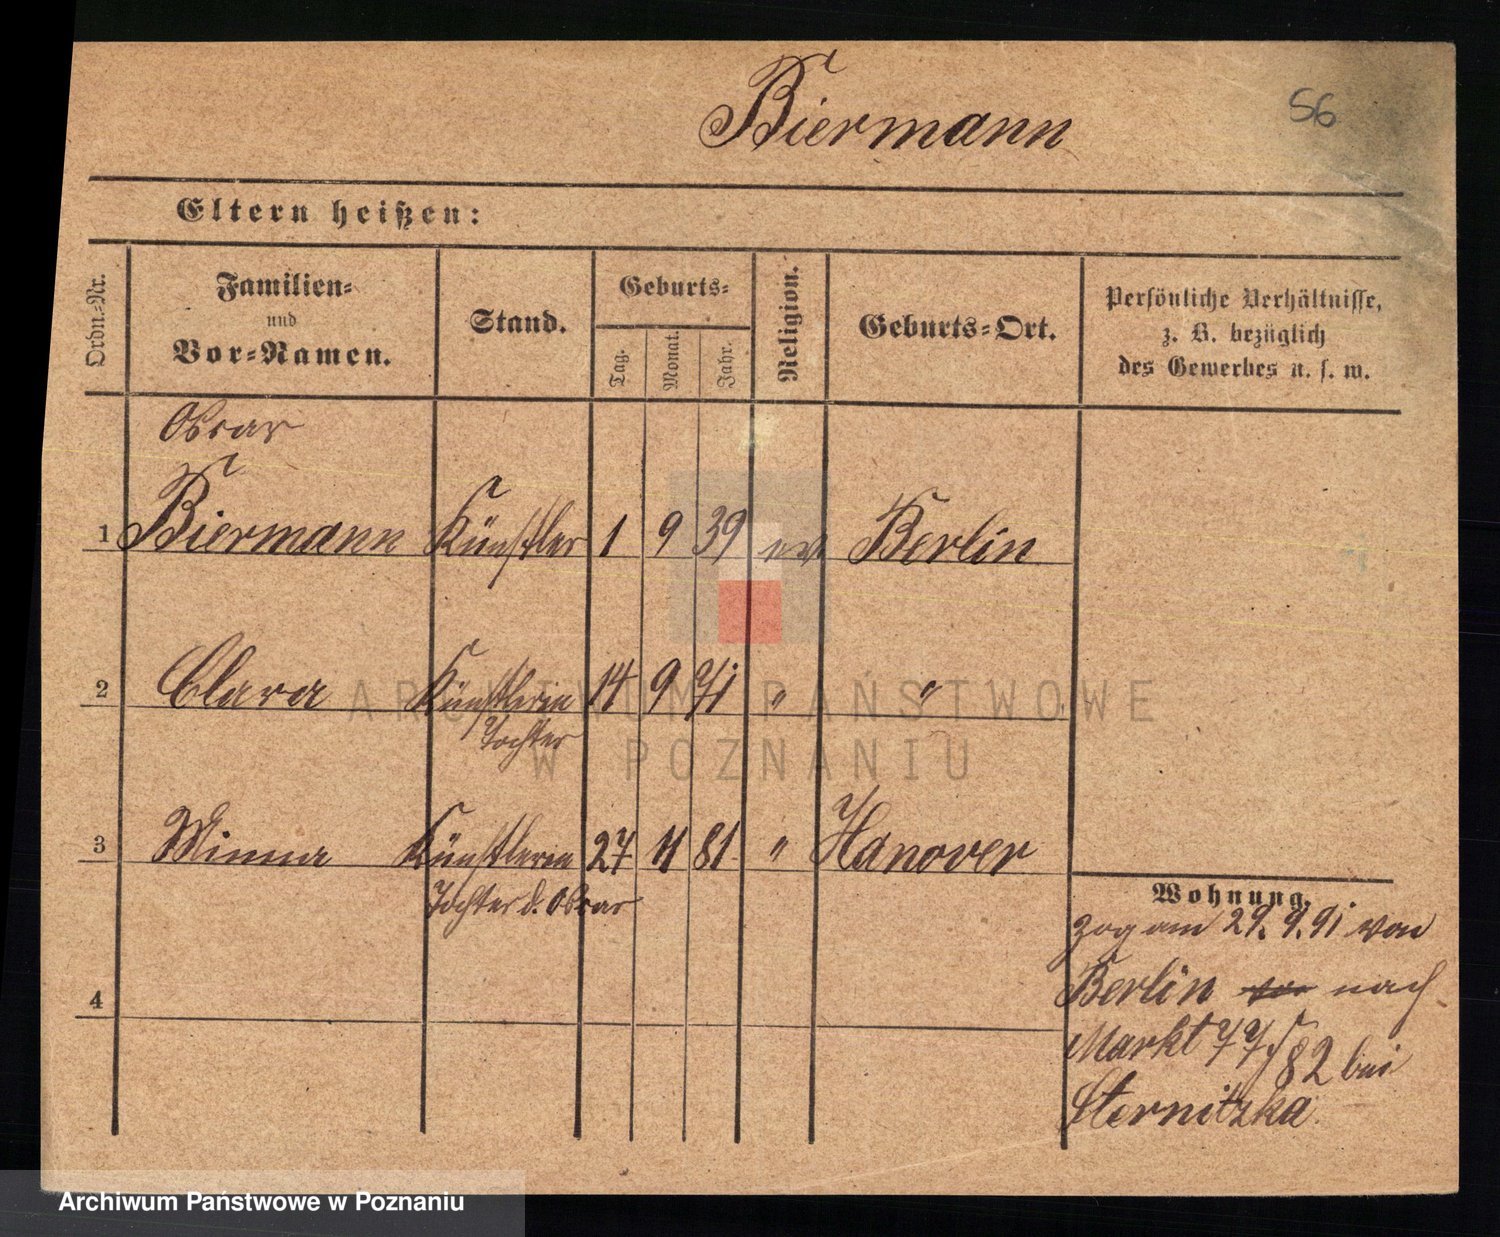 Biermann
56
Eltern heißen:
Ordn.-Nr.
Familien-
und
Vor-Namen.
Stand.
Geburts-
Tag.
Monat.
Jahr.
Religion.
Geburts-Ort.
Persönliche Verhältnisse,
z. B. bezüglich
des Gewerbes u. s. w.
Oscar
1 Biermann Künstler 1 9 39 ev Berlin
2 Clara Künstlerin 14 9 71 " "
Tochter
3 Minna Künstlerin 27 11 81 " Hanover
Tochter d. Oscar
4
Wohnung.
zog am 29. 9. 91 von
Berlin von nach
Markt 77/82 bei
Sternitzka
ARCHIWUM PAŃSTWOWE
W POZNANIU
Archiwum Państwowe w Poznaniu